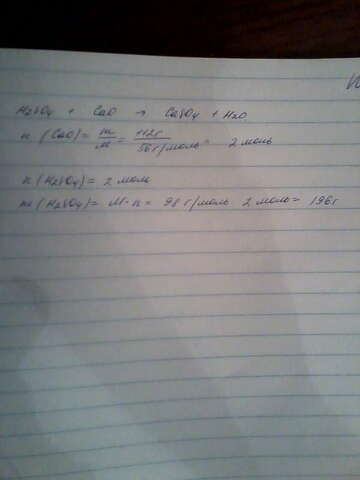 H2SO4 + CaO → CaSO4 + H2O
n (CaO) = m/M = 112г/56 г/моль = 2 моль
n (H2SO4) = 2 моль
m (H2SO4) = M · n = 98 г/моль 2 моль = 196г